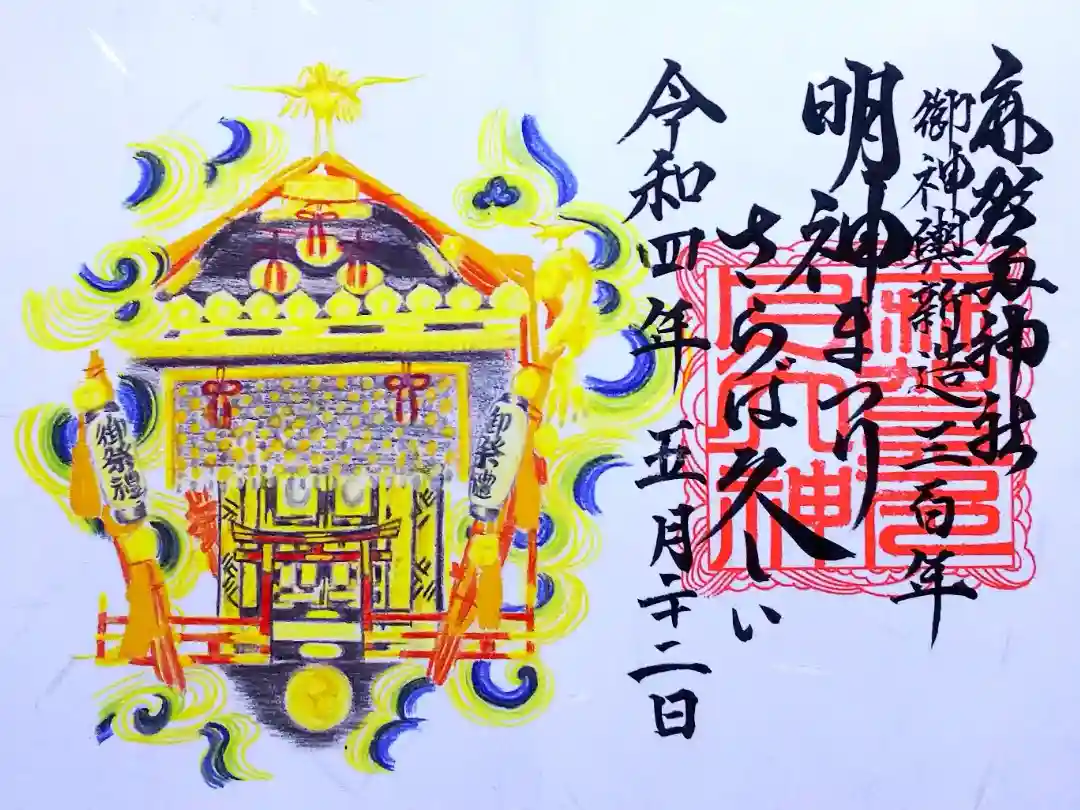 麻賀多神社
御神輿新造三百年
明神まつり
さらば久しい
令和四年五月二十二日
御祭禮
御祭禮